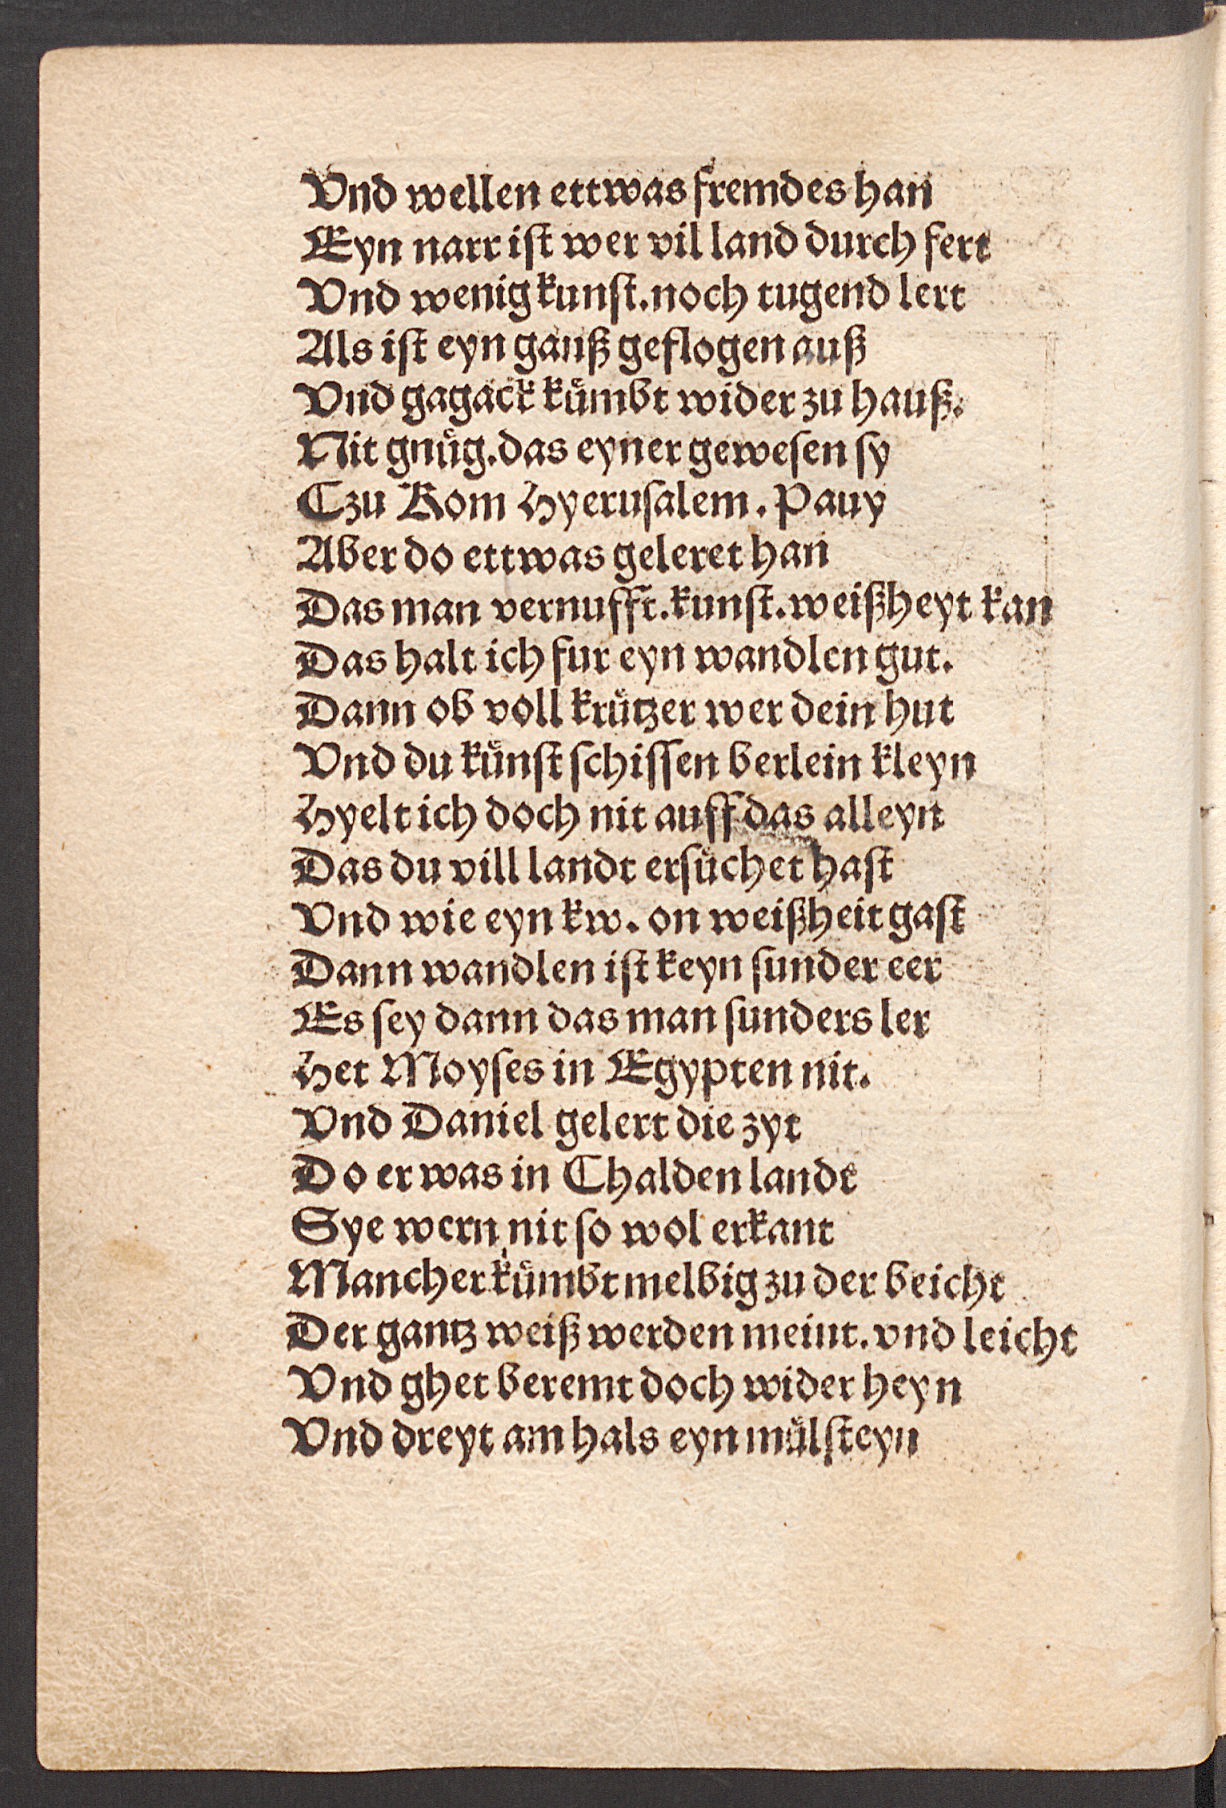 Vnd wellen ettwas fremdes han
Eyn narr ist wer vil land durch fert
Vnd wenig kunst. noch tugend lert
Als ist eyn gauß geflogen auß
Vnd gagack kuͤmbt wider zu hauß.
Nit gnuͤg. das eyner gewesen sy
Czu Rom Hyerusalem. Pauy
Aber do ettwas geleret han
Das man vernufft. kunst. weißheyt kan
Das halt ich fur eyn wandlen gut.
Dann ob voll kruͤtzer wer dein hut
Vnd du kuͤnst schissen berlein kleyn
Hyelt ich doch nit auff das alleyn
Das du vill landt ersuͤchet hast
Vnd wie eyn kw. on weißheit gast
Dann wandlen ist keyn sunder eer
Es sey dann das man sunders ler
Het Moyses in Egypten nit.
Vnd Daniel gelert die zyt
Do er was in Chalden landt
Sye wern nit so wol erkant
Mancher kuͤmbt melbig zu der beicht
Der gantz weiß werden meint. vnd leicht
Vnd ghet beremt doch wider heyn
Vnd dreyt am hals eyn muͤlsteyn